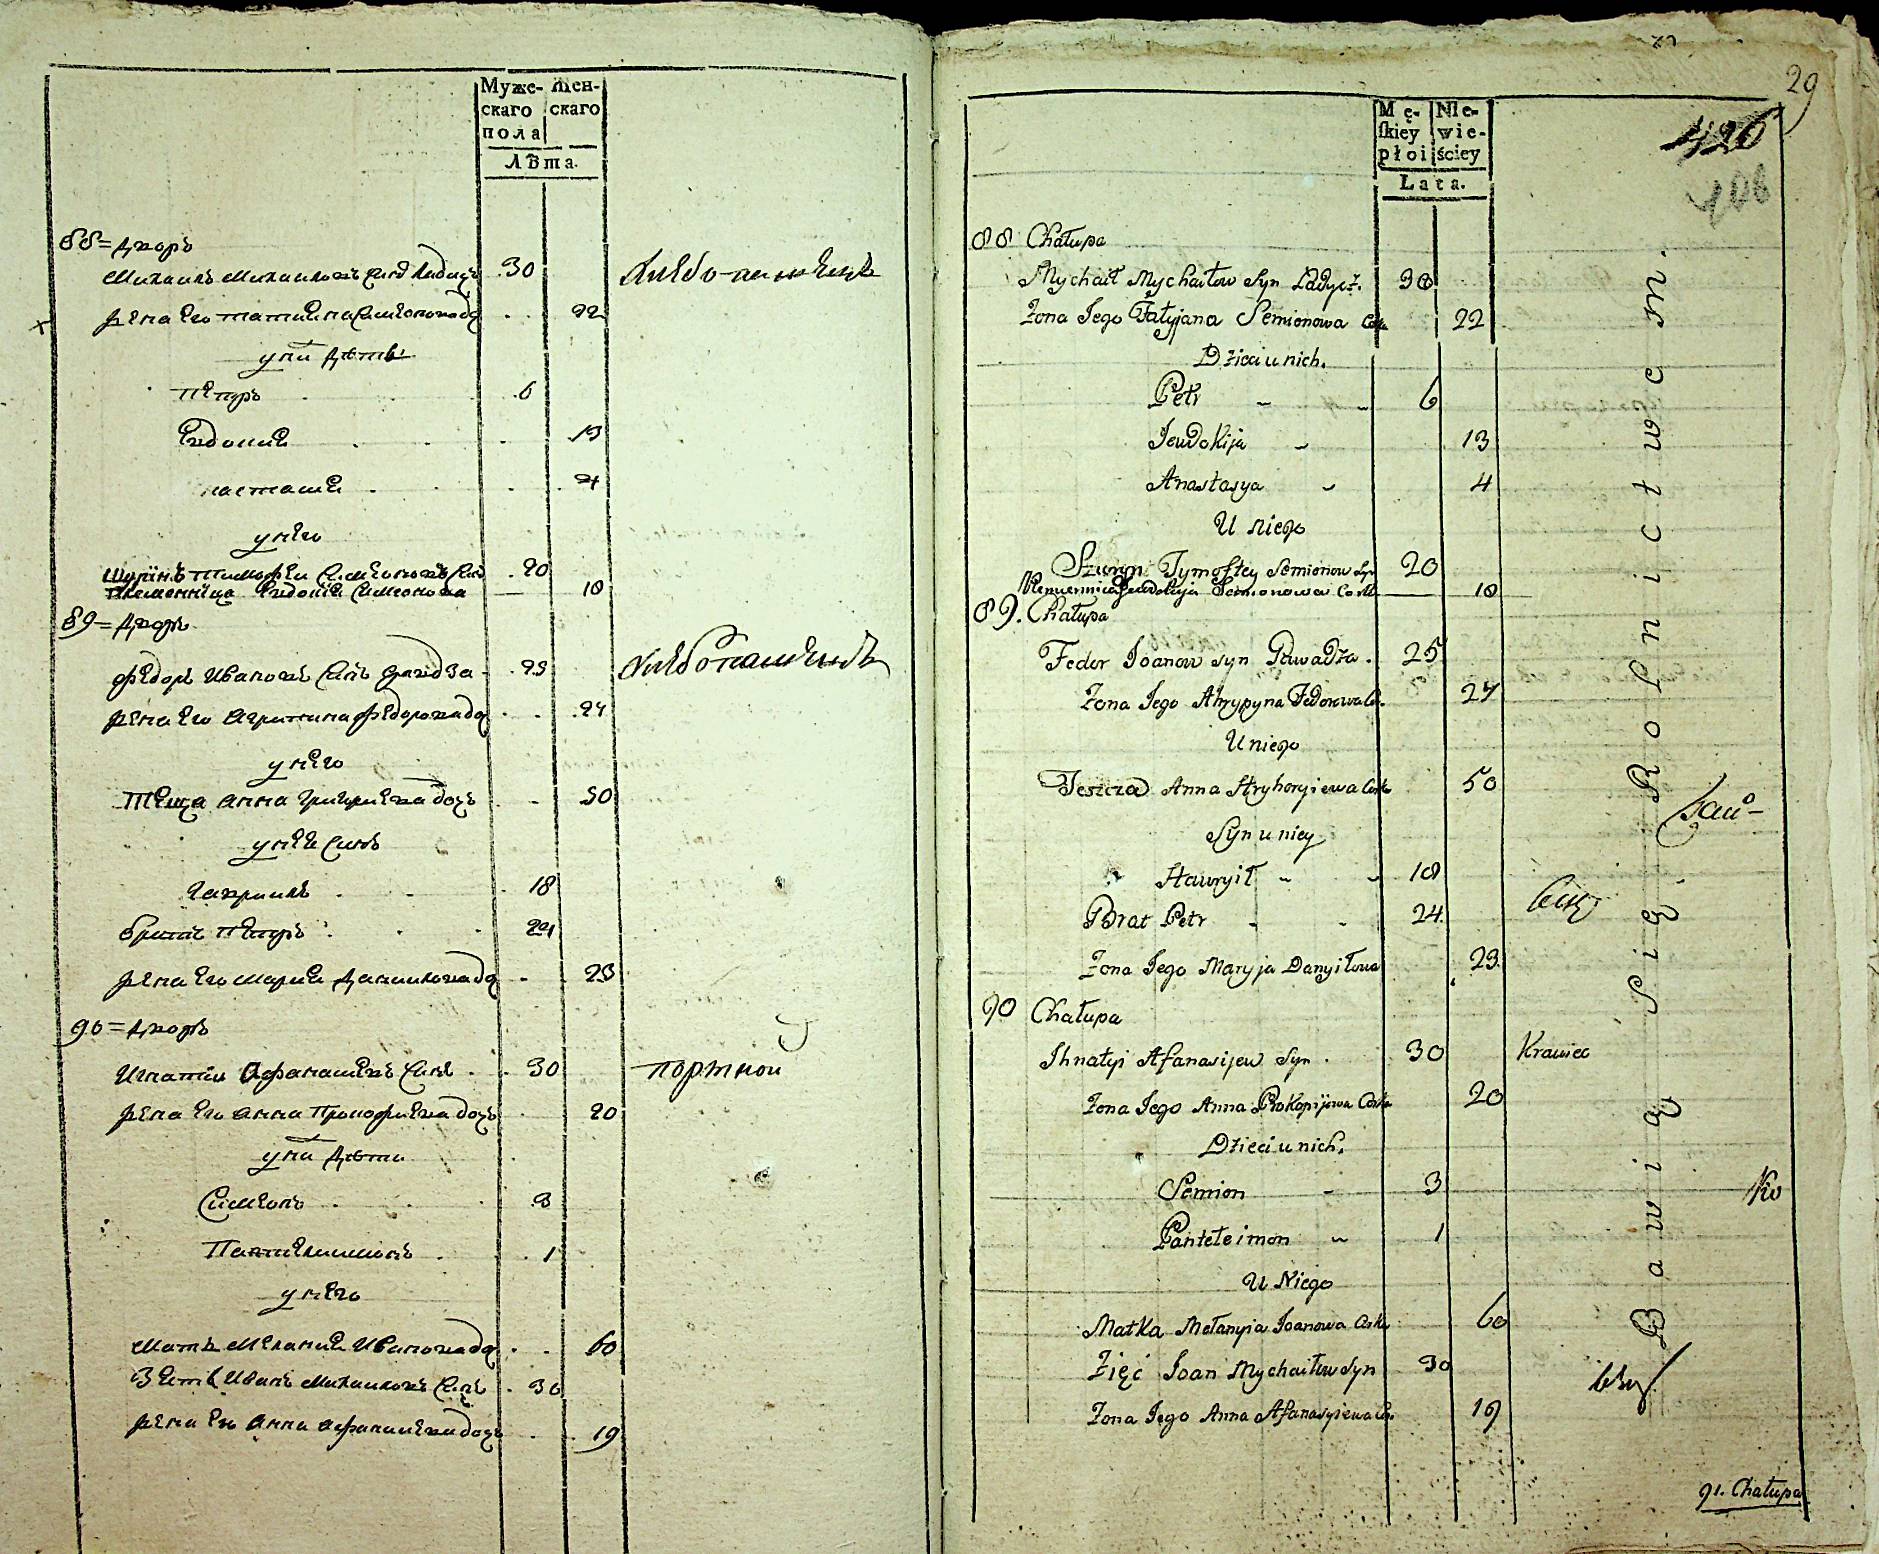 Муже-
скаго
пола
Жен-
скаго
Лѣта.
88 = Дворъ
Михаилъ Михаиловъ синъ Ладиръ 30
Хлебо-пашецъ
жена его татияна Симеонова до 22
у ни дѣти
петръ 6
Евдокия 13
настасия 4
у него
Шуринъ тимофеи Симеоновъ Синъ 20
племенница Евдокія Симеонова 10
89 = Дворъ
Федоръ Ивановъ Синъ 25
Хлебопашецъ
жена его Агрипина Федорова до 24
у него
Теща анна Григориева доч 50
у неи Синъ
Гаврииль 18
братъ петръ 24
жена его мария Даниилова до 23
90 = Дворъ
Игнатии Афанасиевъ Синъ 30
портнои
жена его анна Прокофиева доч 20
у ни дѣти
Симеонъ 3
Пантелиимонъ 1
у него
мать Мелания Иванова до 60
Зять Иванъ михаиловъ Синъ 30
жена его Анна афанасиева доч 19
29
Mę-
skiey
płoi
Nie-
wie-
ściey
Lata.
426
88 Chałupa
Mychaił Mychaiłow Syn Ładycz. 30
Żona Jego Tatyjana Semionowa Corka 22
Dzieci u nich.
Petr 6
Jewdokija 13
Anastasya 4
U niego
Szuryn Tymoftey Semionow Syn 20
Plemiennica Jewdokija Semionowa Corka 10
89. Chałupa
Fedor Joanow syn Gawadza. 25
Żona Jego Ahrypyna Fedorowa Co. 24
U niego
Teszcza Anna Hryhoryiewa Corka 50
Syn u niey
Hawryił 18
Brat Petr 24
Żona Jego Maryja Danyiłowa 23
90 Chałupa
Jhnatyi Afanasijew Syn. 30
Krawiec
Żona Jego Anna Prokopijewa Corka 20
Dzieci u nich.
Semion 3
Pantełeimon 1
U Niego
Matka Mełanyia Joanowa Corka 60
Zięć Joan Mychaiłow Syn 30
Żona Jego Anna Afanasyiewa Co. 19
Bawią Się Rolnictwem.
91. Chałupa